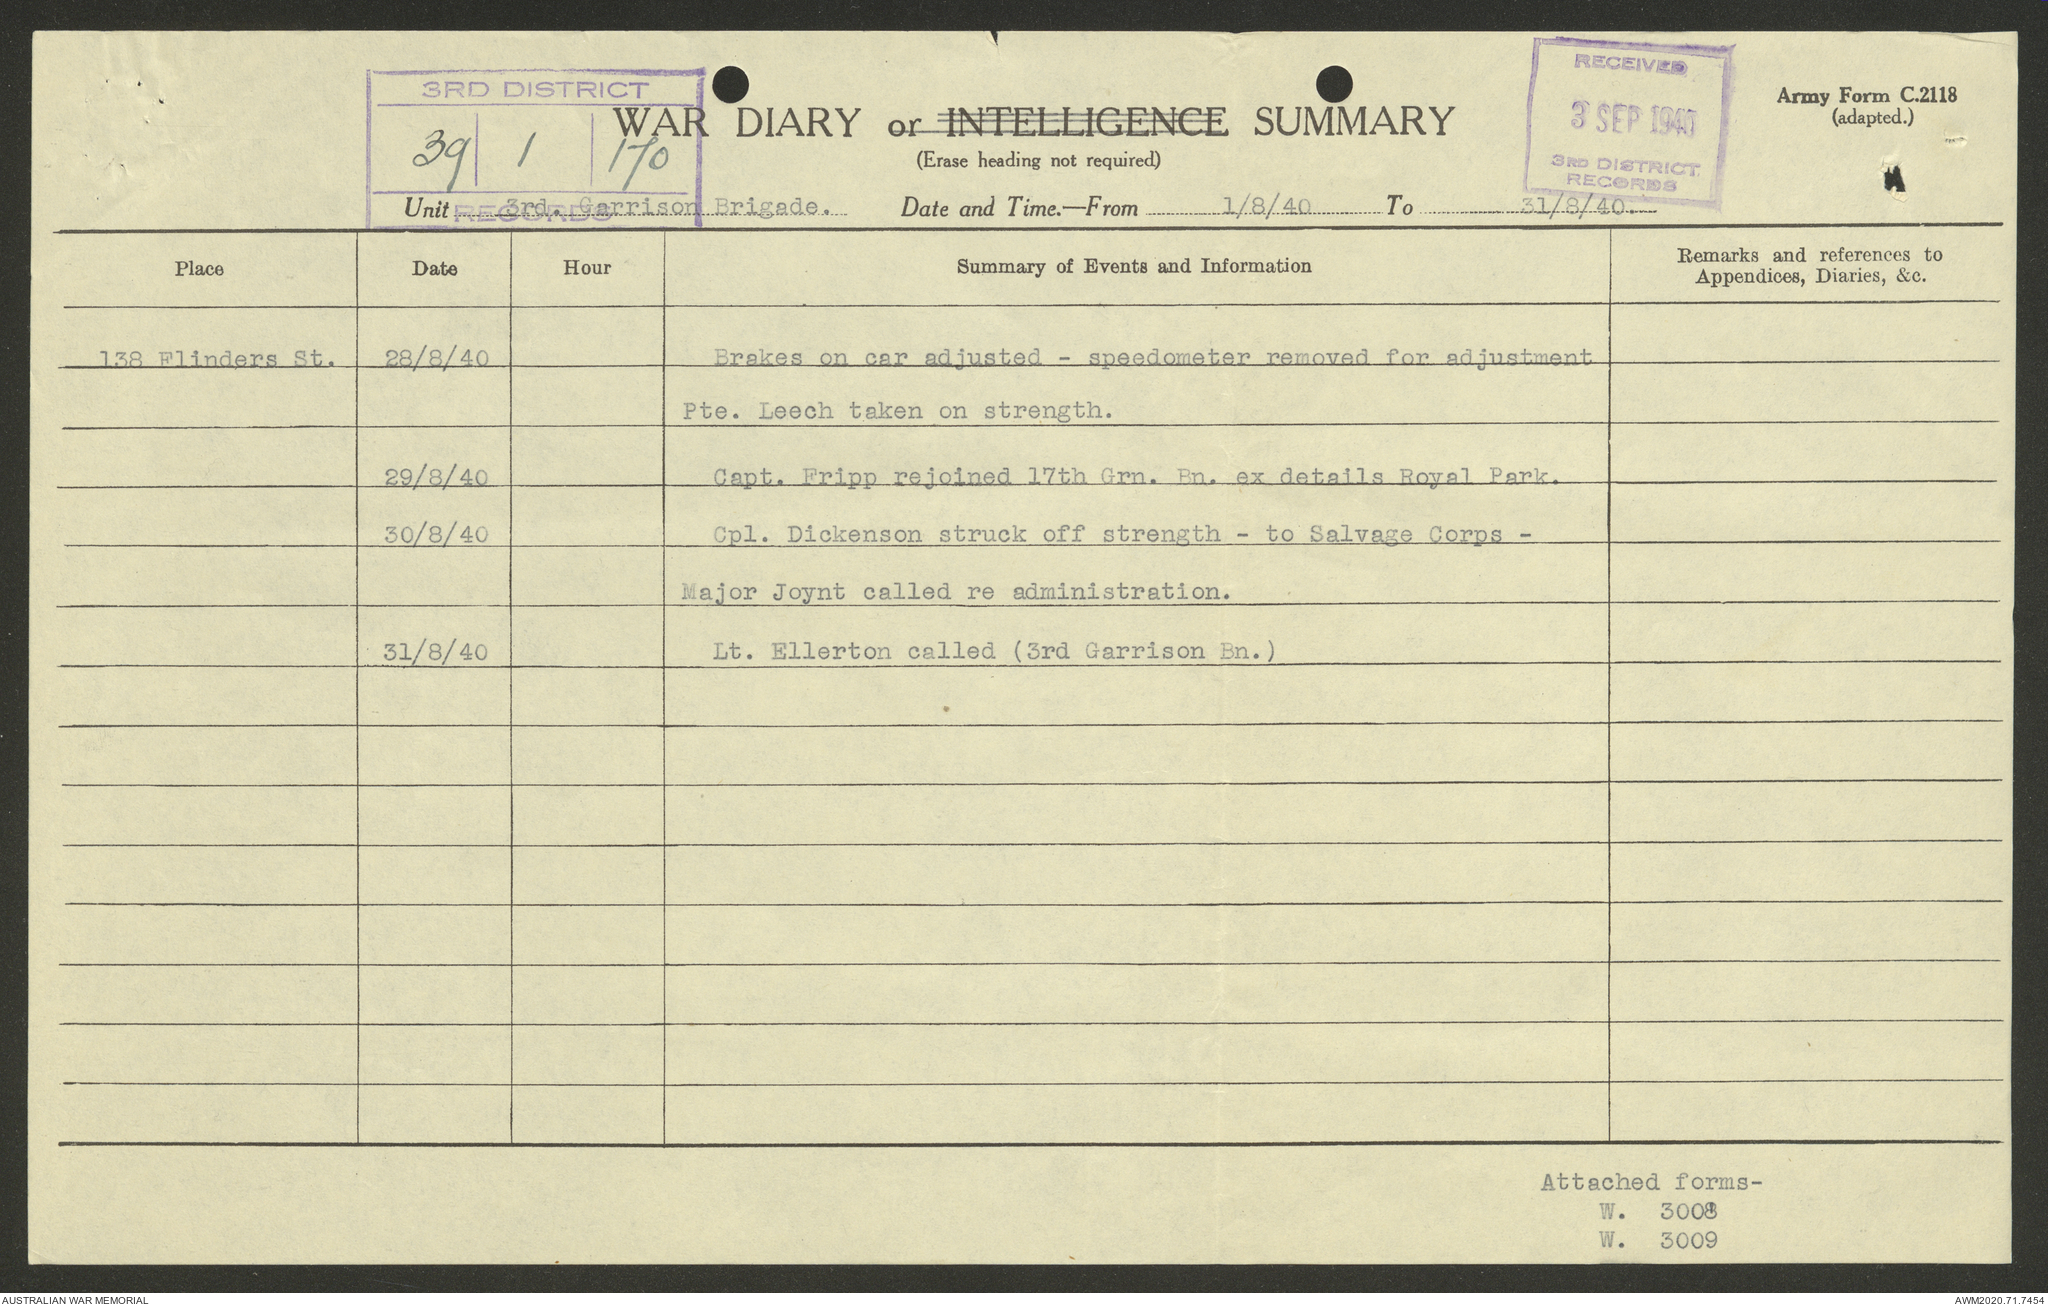 3RD DISTRICT
39 1 170
RECORDS
RECEIVED
3 SEP 1940
3RD DISTRICT
RECORDS
Army Form C.2118
(adapted.)
WAR DIARY or INTELLIGENCE SUMMARY
(Erase heading not required)
Unit 3rd. Garrison Brigade. Date and Time.—From 1/8/40 To 31/8/40.
Place Date Hour Summary of Events and Information Remarks and references to
Appendices, Diaries, &c.
138 Flinders St. 28/8/40 Brakes on car adjusted - speedometer removed for adjustment
Pte. Leech taken on strength.
29/8/40 Capt. Fripp rejoined 17th Grn. Bn. ex details Royal Park.
30/8/40 Cpl. Dickenson struck off strength - to Salvage Corps -
Major Joynt called re administration.
31/8/40 Lt. Ellerton called (3rd Garrison Bn.)
Attached forms-
W. 3008
W. 3009
AUSTRALIAN WAR MEMORIAL
AWM2020.71.7454